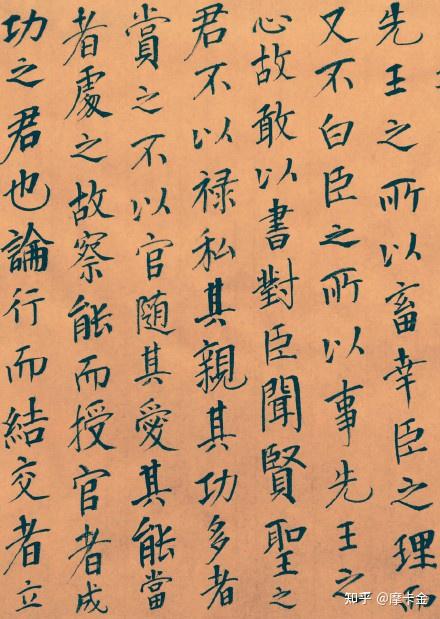 先王之所以畜幸臣之理而
又不白臣之所以事先王之
心故敢以書對臣聞賢聖之
君不以禄私其親其功多者
賞之不以官随其愛其能當
者處之故察能而授官者成
功之君也論行而結交者立
知乎 @摩卡金